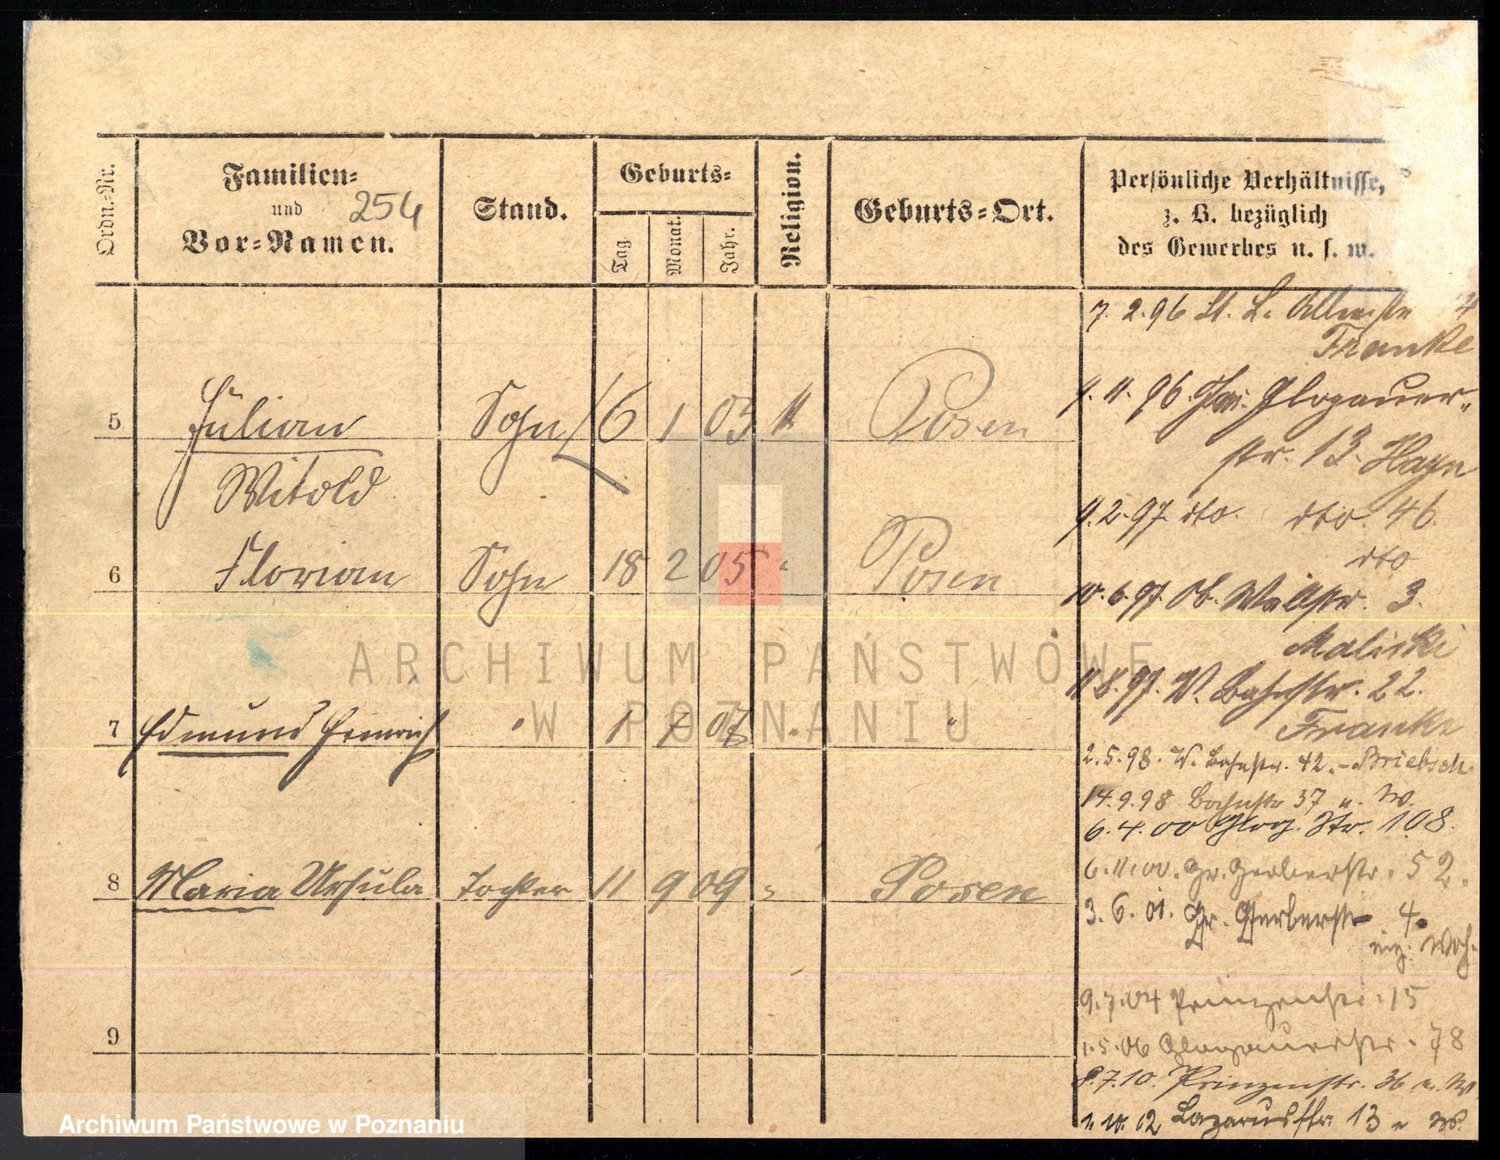 Ordn.-Nr.
Familien-
und
Vor-Namen.
254
Stand.
Geburts-
Tag
Monat.
Jahr.
Religion.
Geburts-Ort.
Persönliche Verhältnisse,
z. B. bezüglich
des Gewerbes u. s. w.
7. 2. 96 St. L. 4
Franke
9. 11. 96 Glogauer-
str. 13. Hayn
9. 2. 97 dto. dto. 46
dto
10. 6. 97 Ob. Wallstr. 3.
Maliski
11. 8. 97. W. Bahnstr. 22.
Franke
2. 5. 98. W. Bahnstr. 42. - Briebsch
14. 9. 98 Bahnstr 37 u. W.
6. 4. 00 Glog. Str. 108.
6. 11. 00. Gr. Gerberstr. 52.
3. 6. 01. Gr. Gerberstr 4.
9. 7. 04 Prinzenstr. 15
1. 5. 06 Glogauerstr. 78
8. 7. 10. Prinzenstr. 36 u. W
1. 10. 12 Lazarusstr. 13 u W.
5 Julian Sohn 6 1 03 Posen
Witold
6 Florian Sohn 18 2 05 " Posen
7 Edmund Heinrich " 1 1 07 " "
8 Maria Ursula Tochter 11 9 09 " Posen
9
ARCHIWUM PAŃSTWOWE
W POZNANIU
Archiwum Państwowe w Poznaniu